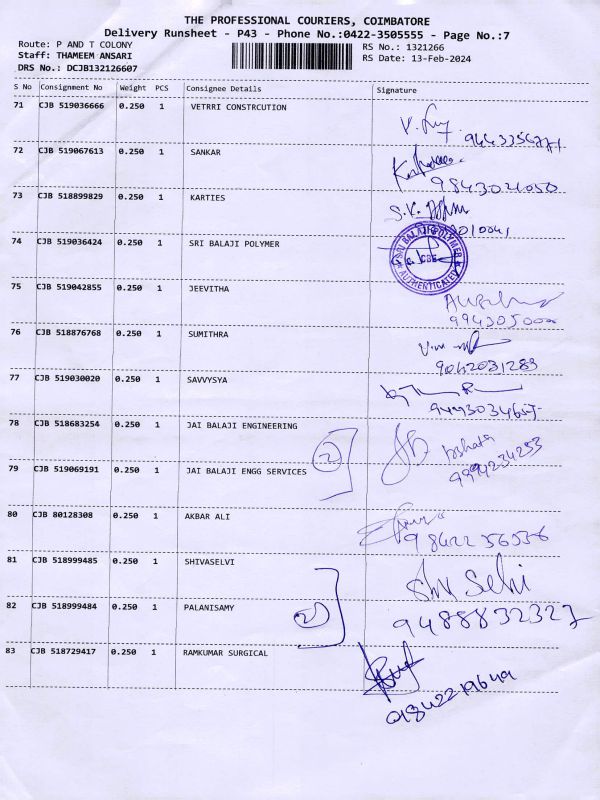 THE PROFESSIONAL COURIERS, COIMBATORE
Delivery Runsheet - P43 - Phone No.:0422-3505555 - Page No.:7
Route: P AND T COLONY RS No.: 1321266
Staff: THAMEEM ANSARI RS Date: 13-Feb-2024
DRS No.: DCJB132126607
S No Consignment No Weight PCS Consignee Details Signature
71 CJB 519036666 0.250 1 VETRRI CONSTRCUTION
72 CJB 519067613 0.250 1 SANKAR
9843021050
73 CJB 518899829 0.250 1 KARTIES
74 CJB 519036424 0.250 1 SRI BALAJI POLYMER
SRI BALAJI POLYMER
CBE
AUTHENTICATED
75 CJB 519042855 0.250 1 JEEVITHA
76 CJB 518876768 0.250 1 SUMITHRA
77 CJB 519030020 0.250 1 SAVVYSYA
78 CJB 518683254 0.250 1 JAI BALAJI ENGINEERING
2
9994234253
79 CJB 519069191 0.250 1 JAI BALAJI ENGG SERVICES
80 CJB 80128308 0.250 1 AKBAR ALI
9842256536
81 CJB 518999485 0.250 1 SHIVASELVI
Shiv Selvi
82 CJB 518999484 0.250 1 PALANISAMY
2
9488832327
83 CJB 518729417 0.250 1 RAMKUMAR SURGICAL